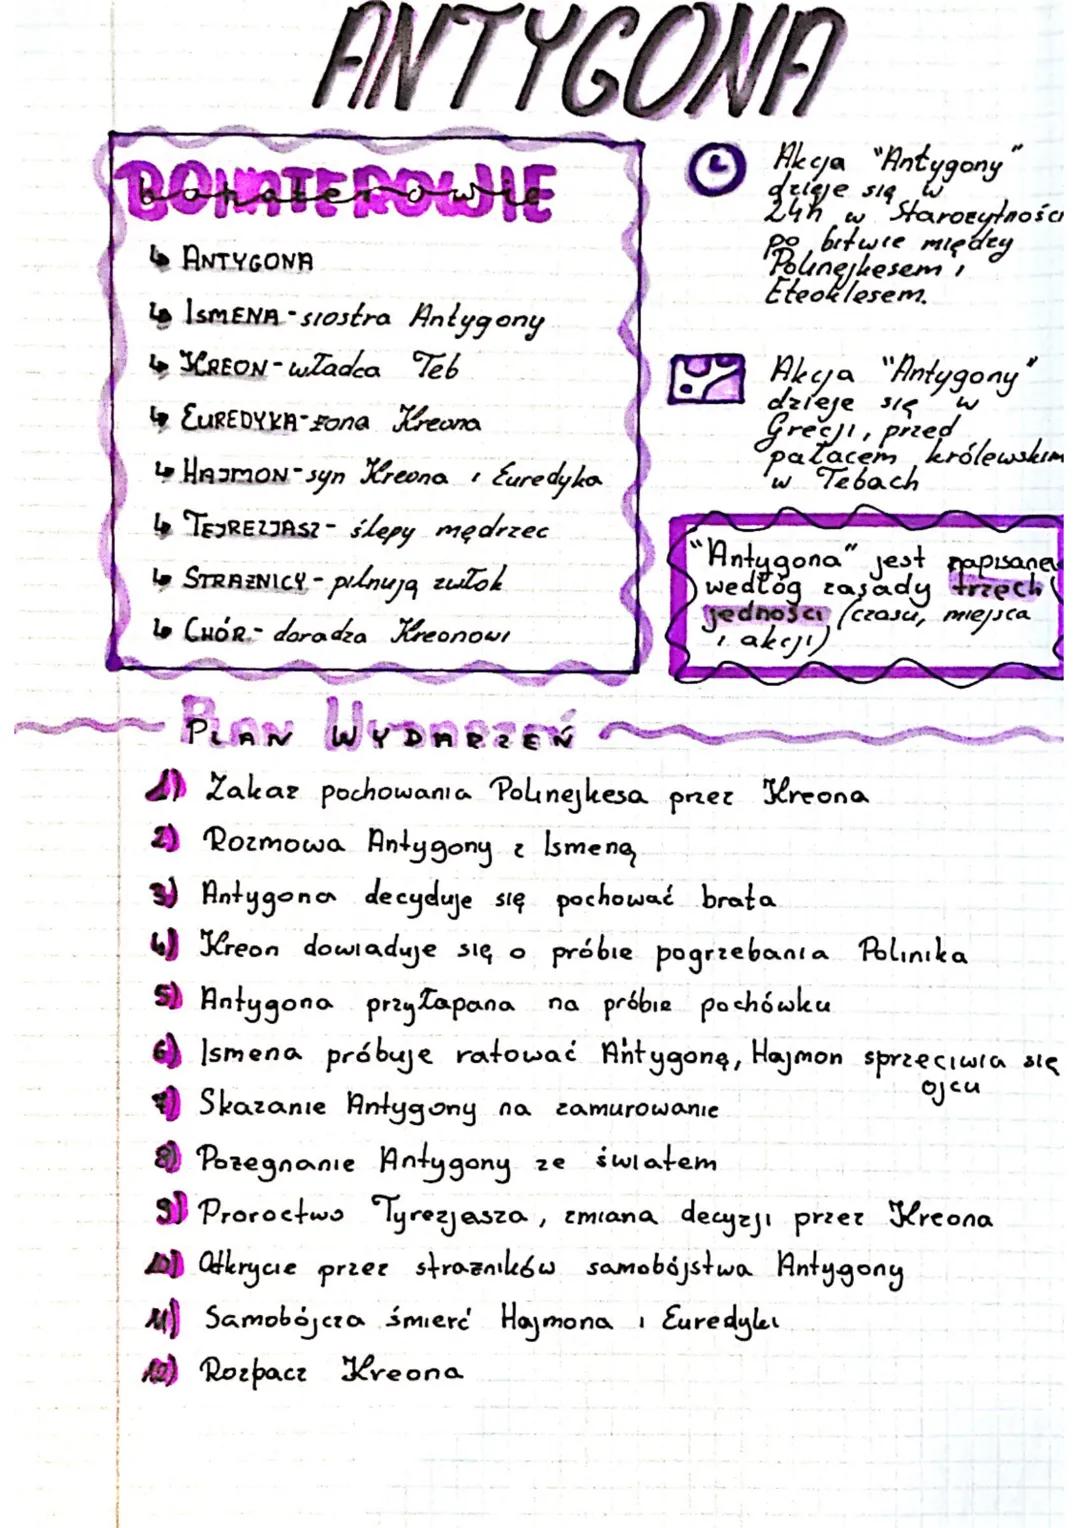 ANTYGONA
BOHATEROWIE
bohaterowie
↳ ANTYGONA
↳ ISMENA - siostra Antygony
↳ KREON - władca Teb
↳ EUREDYKA - żona Kreona
↳ HAJMON - syn Kreona i Euredyka
↳ TEJREZJASZ - ślepy mędrzec
↳ STRAŻNICY - pilnują zwłok
↳ CHÓR - doradza Kreonowi
Akcja "Antygony"
dzieje się w
24h w Starożytności
po bitwie między
Polinejkesem i
Eteoklesem.
Akcja "Antygony"
dzieje się w
Grecji, przed
pałacem królewskim
w Tebach
"Antygona" jest napisane
wedłóg zasady trzech
jedności (czasu, miejsca
i akcji)
PLAN WYDARZEŃ
1) Zakaz pochowania Polinejkesa przez Kreona
2) Rozmowa Antygony z Ismeną
3) Antygona decyduje się pochować brata
4) Kreon dowiaduje się o próbie pogrzebania Polinika
5) Antygona przyłapana na próbie pochówku
6) Ismena próbuje ratować Antygonę, Hajmon sprzeciwia się
ojcu
7) Skazanie Antygony na zamurowanie
8) Pożegnanie Antygony ze światem
9) Proroctwo Tyrezjasza, zmiana decyzji przez Kreona
10) Otkrycie przez strażników samobójstwa Antygony
11) Samobójcza śmierć Hajmona i Euredyki
12) Rozpacz Kreona